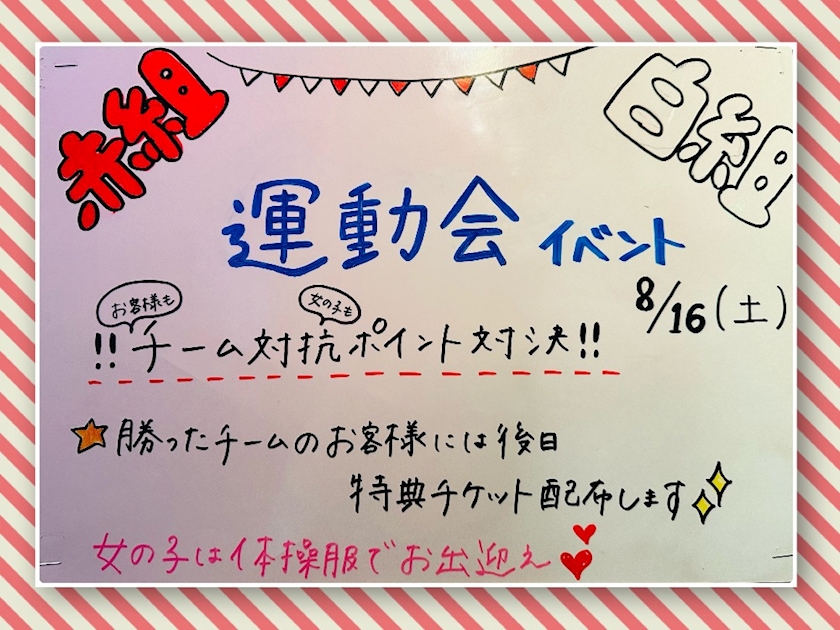 赤組
白組
運動会 イベント
8/16(土)
お客様も
女の子も
!!チーム対抗ポイント対決!!
勝ったチームのお客様には後日
特典チケット配布します
女の子は体操服でお出迎え